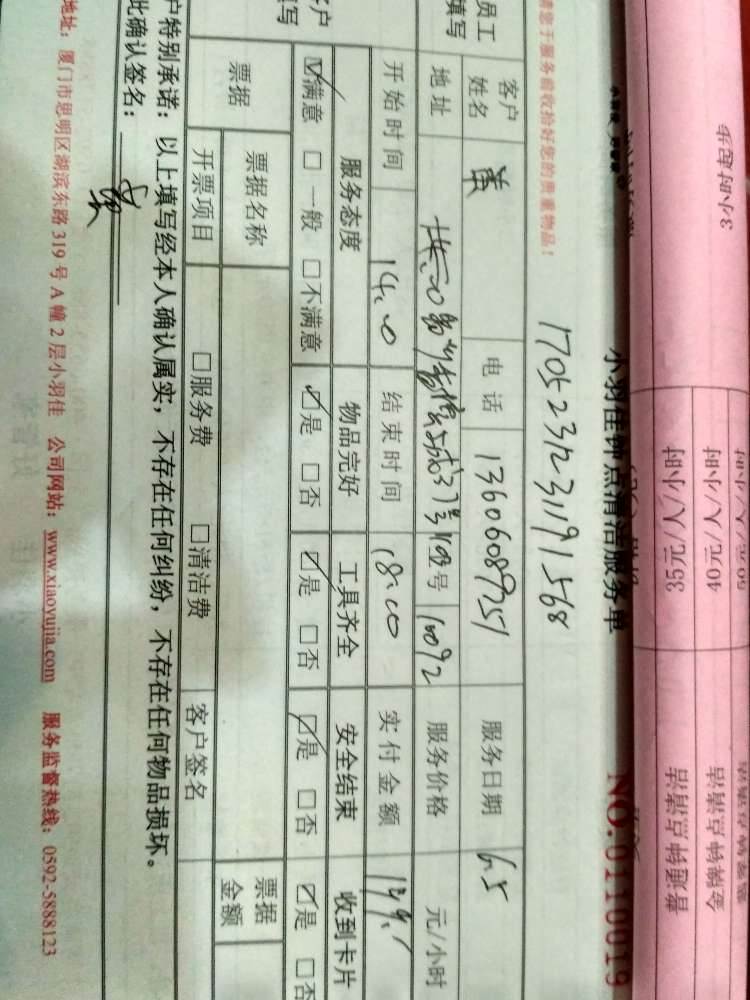 3小时起步
35元/人/小时
普通钟点清洁
40元/人/小时
金牌钟点清洁
小羽佳钟点清洁服务单
NO.0110019
请您于服务前收拾好您的贵重物品!
17052312311191568
员工
填写
客户
姓名
黄
电话
13606089251
服务日期
6.5
地址
号
10092
服务价格
元/小时
开始时间
14.00
结束时间
18:00
实付金额
客户
填写
服务态度
物品完好
工具齐全
安全结束
收到卡片
☑满意 □一般 □不满意
☑是 □否
☑是 □否
☑是 □否
☑是 □否
票据
票据名称
票据
金额
开票项目
□服务费 □清洁费
客户签名
户特别承诺:以上填写经本人确认属实,不存在任何纠纷,不存在任何物品损坏。
此确认签名:
黄
地址:厦门市思明区湖滨东路319号A幢2层小羽佳 公司网站:www.xiaoyujia.com 服务监督热线:0592-5888123